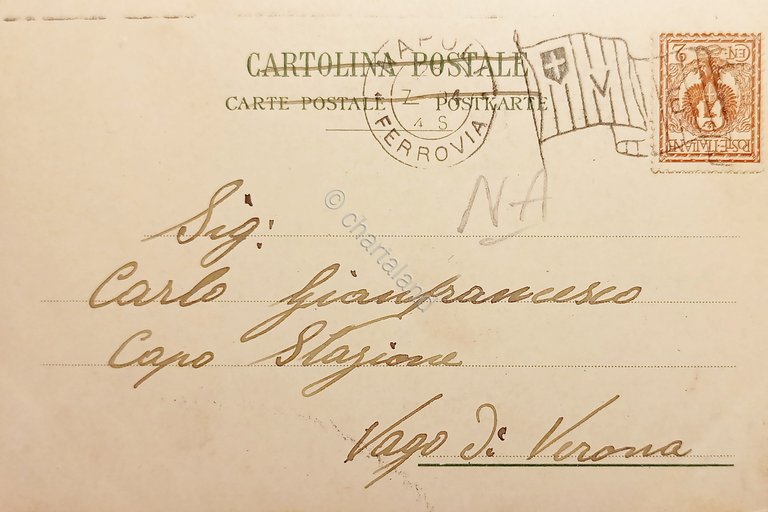 CARTOLINA POSTALE
CARTE POSTALE POSTKARTE
NAPOLI
7
4 S
FERROVIA
V
2
POSTE·ITALIANE
NA
© chartaland
Sig:
Carlo Gianfrancesco
Capo Stazione
Vago di Verona